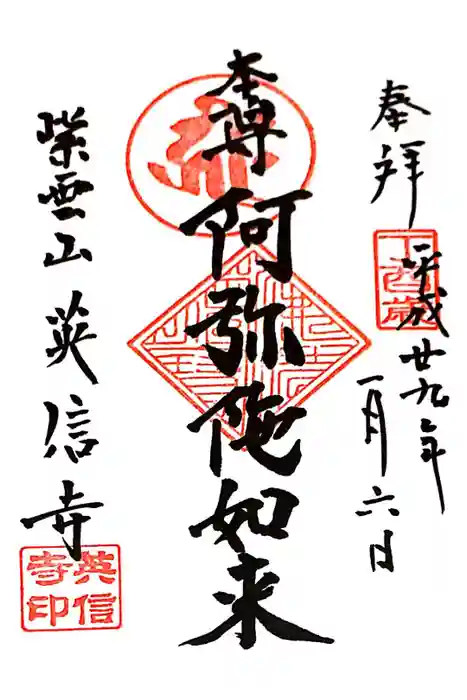 奉拝
平成廿九年
一月六日
本尊
阿弥陀如来
紫雲山 英信寺
英信寺印